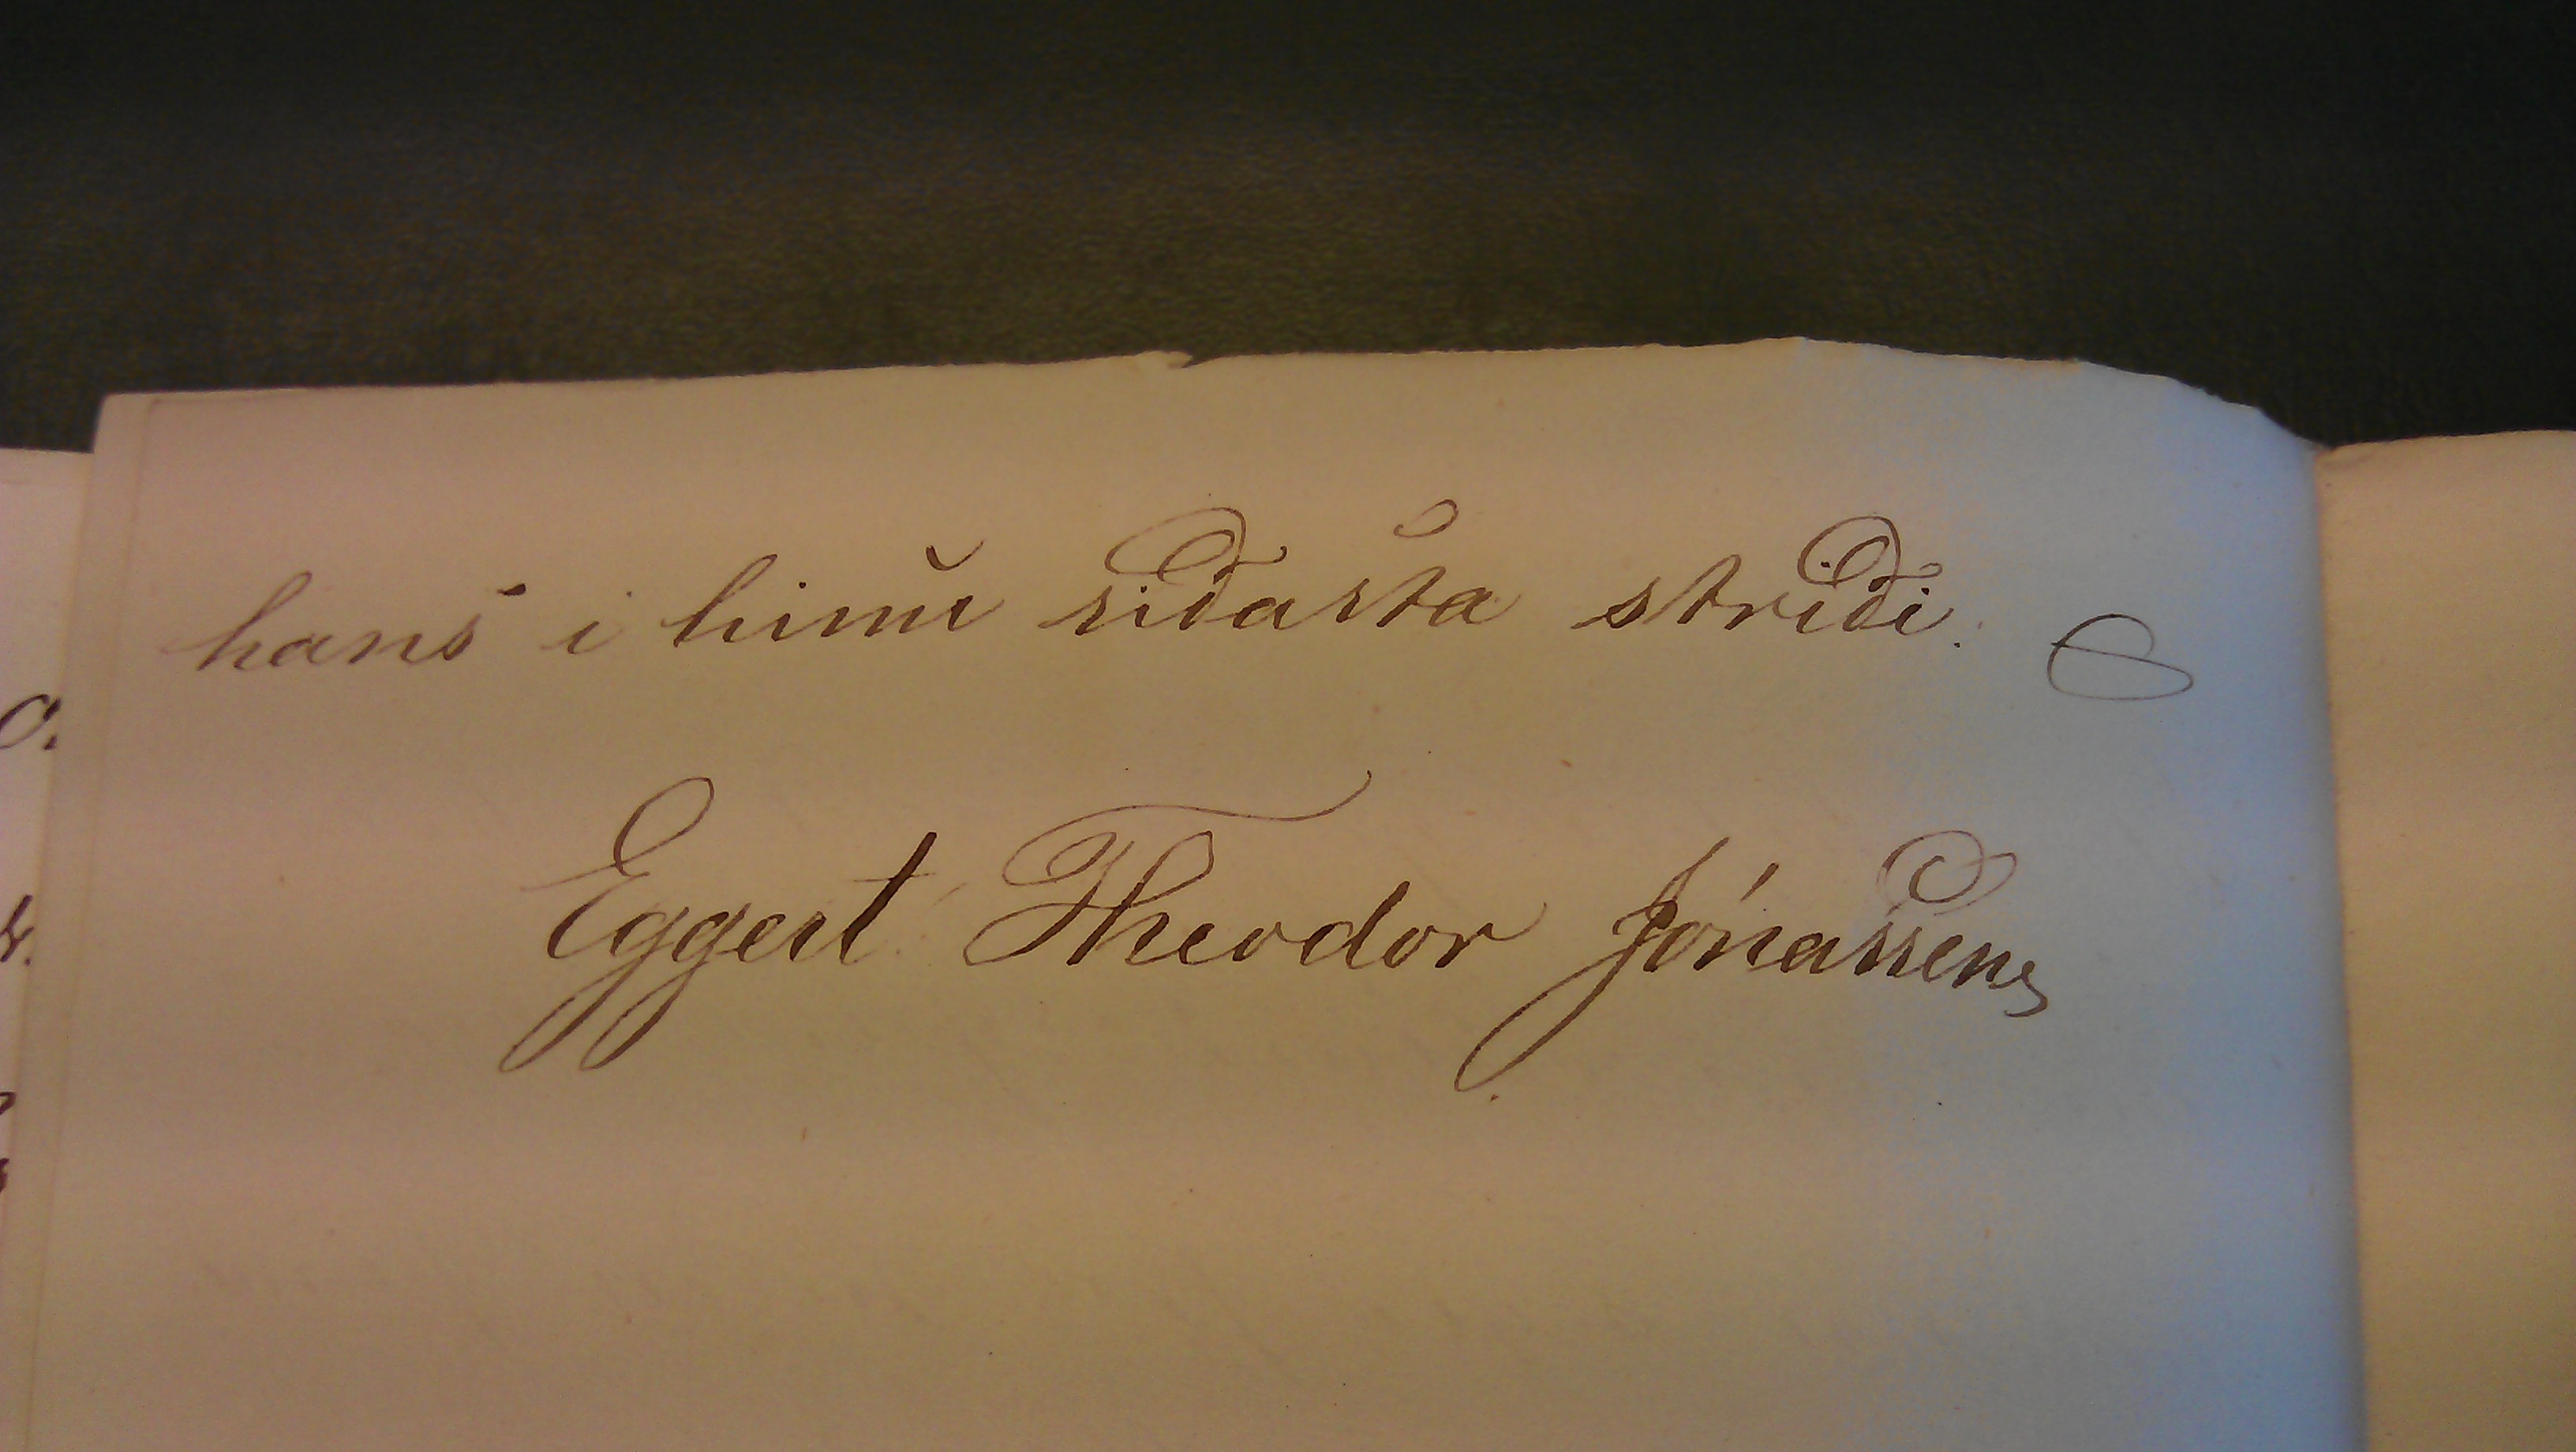 hans i hinu siðasta striði.
Eggert Theodor Jónassen